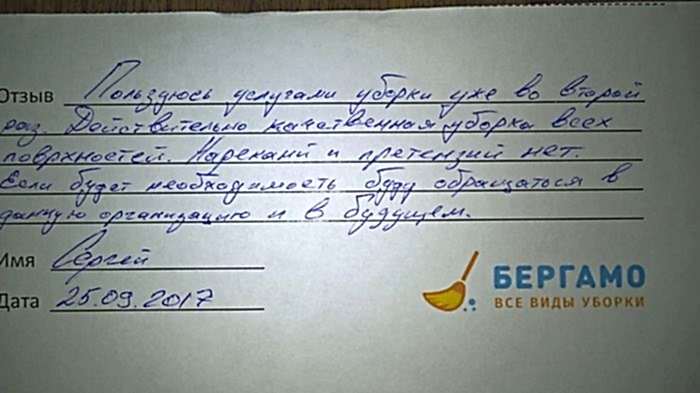 Отзыв Пользуюсь услугами уборки уже во второй
раз. Действительно качественная уборка всех
поврхностей. Нареканий и претензий нет.
Если будет необходимость буду обращаться в
данную организацию и в будущем.
Имя Сергей
БЕРГАМО
ВСЕ ВИДЫ УБОРКИ
Дата 25.09.2017